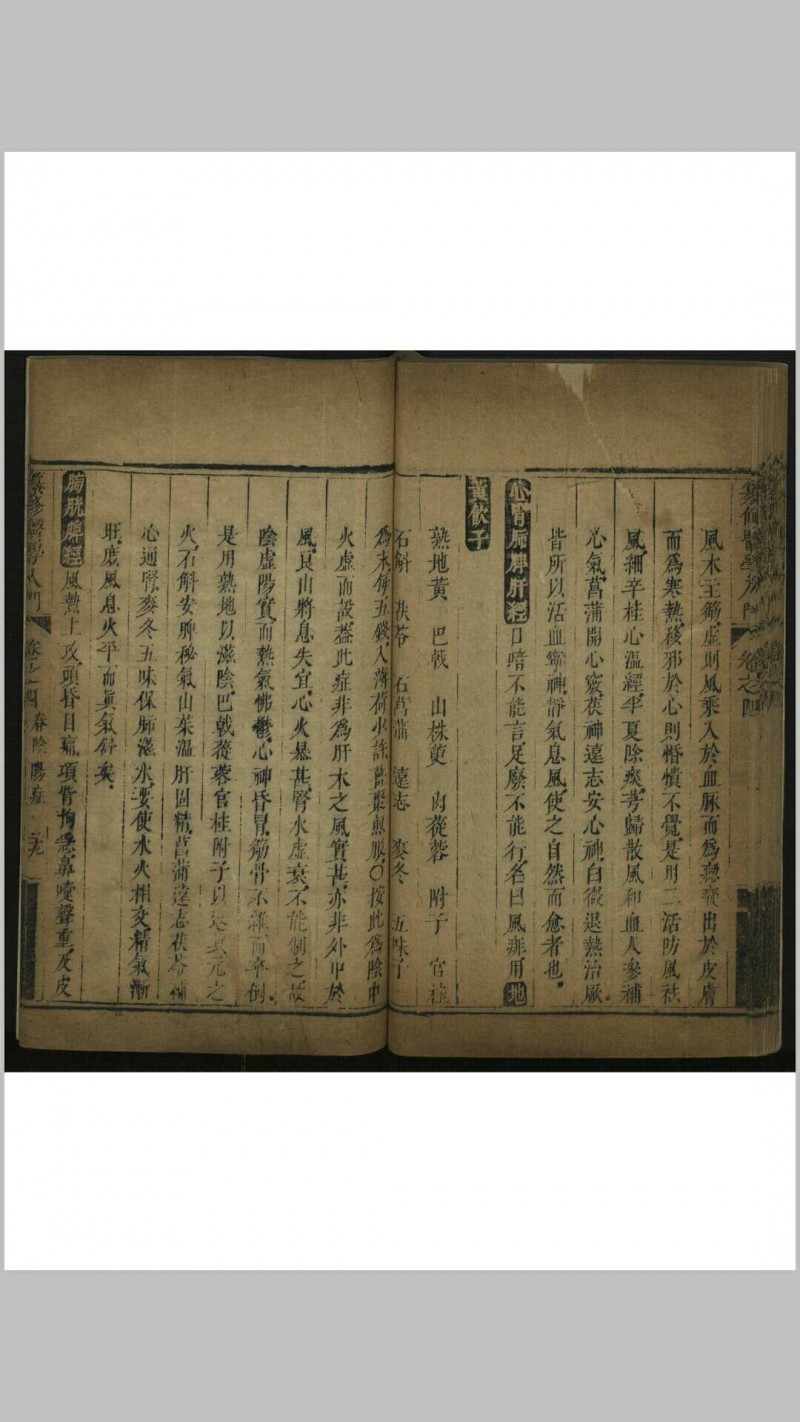 纂修醫學入門 卷之四
風木主筋虛則風乘入於血脉而為癮𤺋出於皮膚
而為寒熱移邪於心則惛憒不覺是用二活防風袪
風細辛桂心溫經半夏除痰芎歸散風和血人參補
心氣菖蒲開心竅茯神遠志安心神白薇退熱治厥
皆所以活血寧神靜氣息風使之自然而愈者也
心腎肺脾肝經口喑不能言足廢不能行名曰風痱用地
黃飲子
熟地黃 巴戟 山株萸 肉蓯蓉 附子 官桂
石斛 茯苓 石菖蒲 遠志 麥冬 五味子
為末每五錢入薄荷水許舊聚煎服〇按此為陰中
火虛而設蓋此症非為肝木之風實甚亦非外中於
風良由將息失宜心火暴甚腎水虛衰不能制之故
陰虛陽實而熱氣佛鬱心神昏冒筋骨不 而卒倒
是用熟地以滋陰巴戟蓯蓉官桂附子以返真元之
火石斛安脾秘氣山茱溫肝固精菖蒲遠志茯苓補
心通腎麥冬五味保肺滋水要使水火相交精氣漸
旺庶風息火平而真氣舒矣
胸胱脾經風熱上攻頭昏目痛項背拘急鼻嚏聲重及皮
纂修醫學入門 卷之四 春 陰陽症 二九